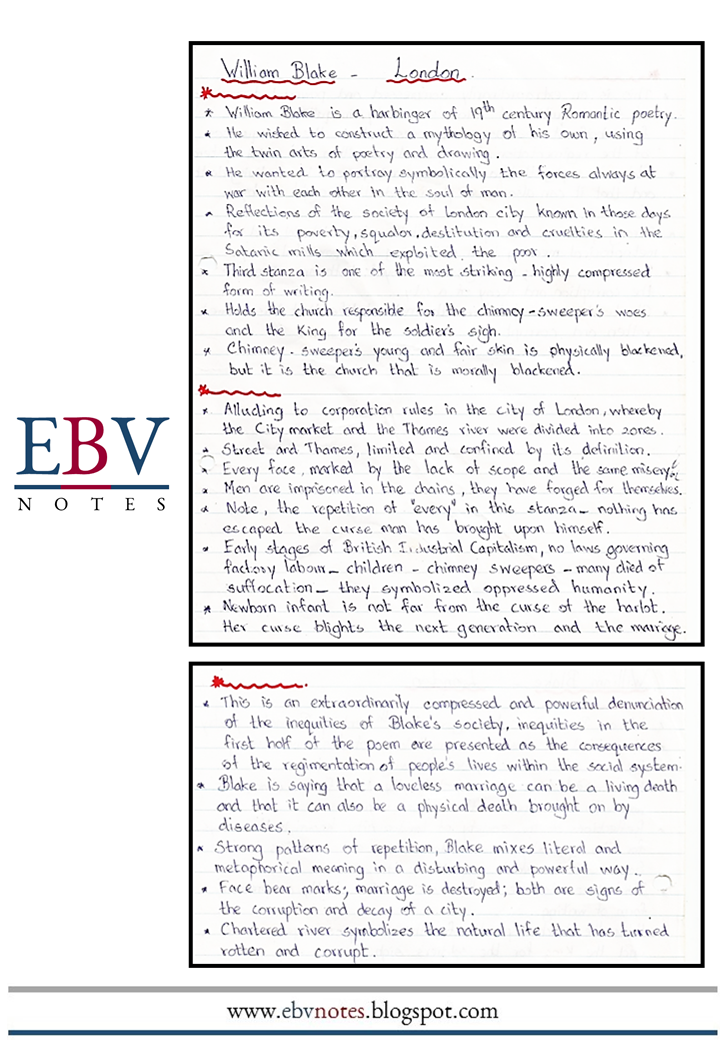 William Blake - London.
* William Blake is a harbinger of 19th century Romantic poetry.
* He wished to construct a mythology of his own, using
the twin arts of poetry and drawing.
* He wanted to portray symbolically the forces always at
war with each other in the soul of man.
* Reflections of the society of London city known in those days
for its poverty, squalor, destitution and cruelties in the
Satanic mills which exploited the poor.
* Third stanza is one of the most striking - highly compressed
form of writing.
* Holds the church responsible for the chimney-sweeper's woes
and the King for the soldier's sigh.
* Chimney-sweeper's young and fair skin is physically blackened,
but it is the church that is morally blackened.
* Alluding to corporation rules in the city of London, whereby
the City market and the Thames river were divided into zones.
* Street and Thames, limited and confined by its definition.
* Every face, marked by the lack of scope and the same misery
* Men are imprisoned in the chains, they have forged for themselves.
* Note, the repetition of "every" in this stanza - nothing has
escaped the curse man has brought upon himself.
* Early stages of British Industrial Capitalism, no laws governing
factory labour - children - chimney sweepers - many died of
suffocation - they symbolized oppressed humanity.
* Newborn infant is not far from the curse of the harlot.
Her curse blights the next generation and the marriage.
EBV
NOTES
* This is an extraordinarily compressed and powerful denunciation
of the inequities of Blake's society, inequities in the
first half of the poem are presented as the consequences
of the regimentation of people's lives within the social system.
* Blake is saying that a loveless marriage can be a living death
and that it can also be a physical death brought on by
diseases.
* Strong patterns of repetition, Blake mixes literal and
metaphorical meaning in a disturbing and powerful way.
* Face bear marks; marriage is destroyed; both are signs of
the corruption and decay of a city.
* Chartered river symbolizes the natural life that has turned
rotten and corrupt.
www.ebvnotes.blogspot.com